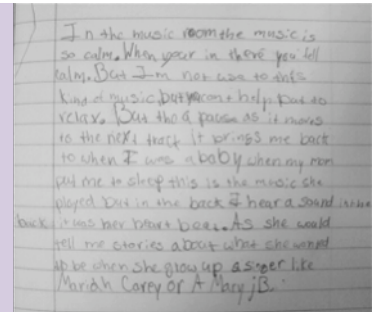 In the music room the music is
so calm. When your in there you fell
calm. But I'm not use to this
kind of music but you can't help but to
relax. But the a pause as it moves
to the next track it brings me back
to when I was a baby when my mom
put me to sleep this is the music she
played but in the back I hear a sound in the
back it was her heart beat. As she would
tell me stories about what she wanted
to be when she grow up a singer like
Mariah Carey or A Mary j B.